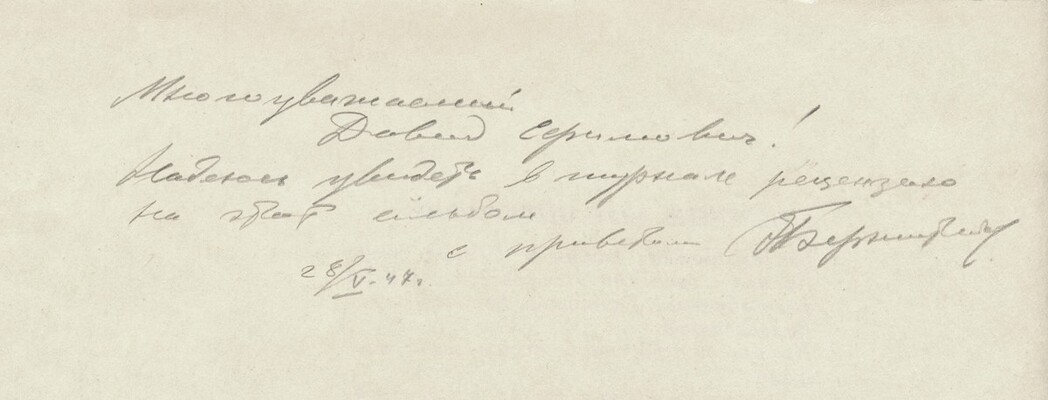 Многоуважаемый
Давид Ефимович!
Надеюсь увидеть в журнале рецензию
на этот альбом
с приветом
28/V.47г.